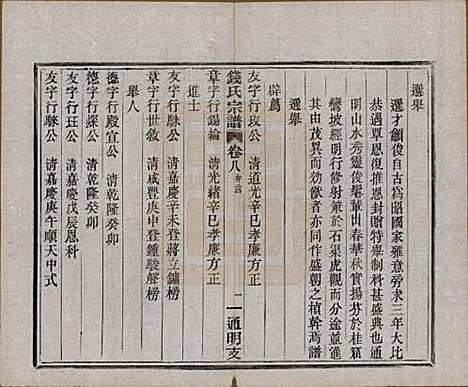 選舉
選才顧俊自古爲昭國家雅意旁求三年大比
恭遇覃恩復推恩封贈特舉制科甚盛典也通
明山水秀靈俊髦輩出春華秋實揚芬於桂籍
鸞坡經明行修射策於石渠虎觀而分途並進
其由茂異舉者亦同作盛朝之楨幹焉譜
選舉
辟薦
友字行玫公　清道光辛巳孝廉方正
錢氏宗譜　卷八　一　通明支
章字行錫綸　清光緒辛巳孝廉方正
進士
友字行駷公　清嘉慶辛未登蔣立鏞榜
章字行世敘　清咸豐庚申登鍾駿聲榜
舉人
德字行殿宣公　清乾隆癸卯
德字行騋公　清乾隆癸卯
友字行玨公　清嘉慶戊辰恩科
友字行駷公　清嘉慶庚午順天中式